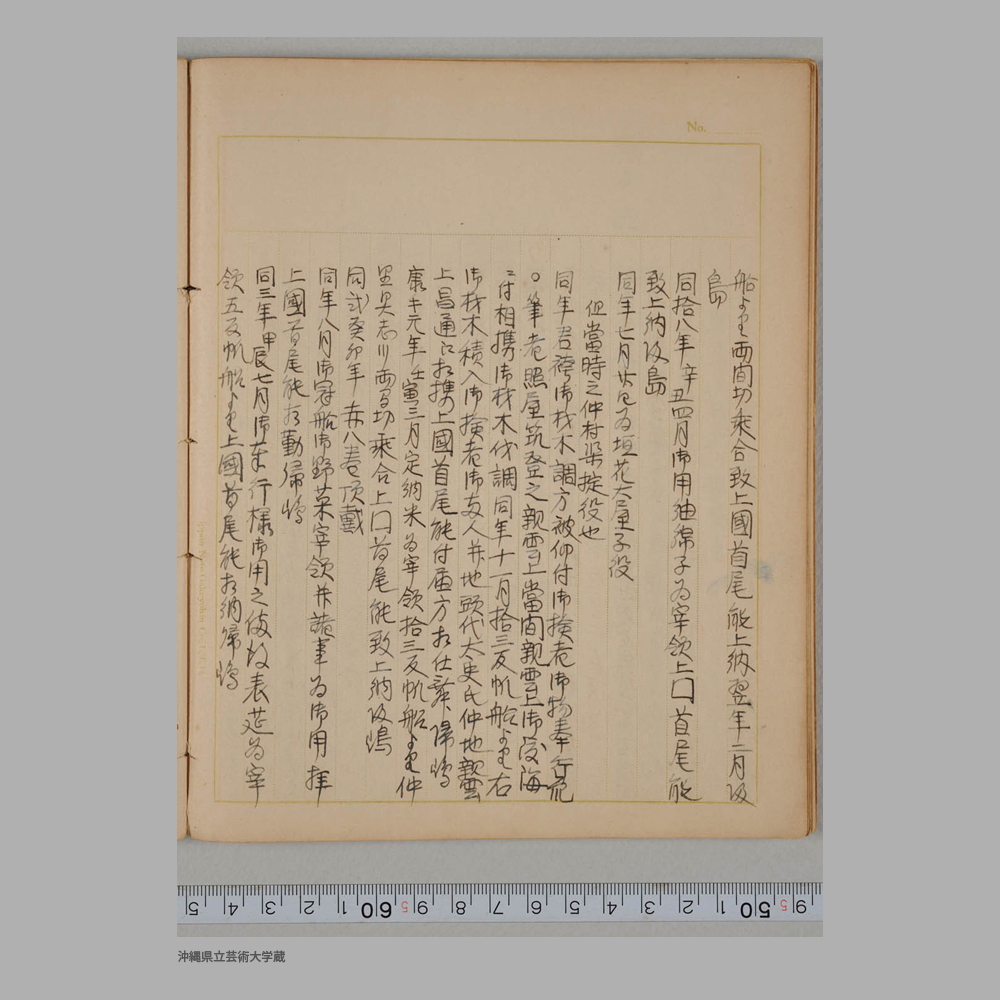 船
両間切乗合致上國首尾能上納翌年二月
島
同拾八年辛丑四月御用油綿子為宰領上口首尾能
致上納帰島
同年七月廿日為垣花大屋子役
但當時之仲村渠掟役也
同年君誇御材木調方被仰付御検者御物奉行
筆者照屋筑登之親雲上當間親雲上御渡海
付相携御材木伐調同年十一月拾三反帆船 右
御材木積入御検者御両人并地頭代太史氏仲地親雲
上昌通 相携上國首尾能付届方相仕 帰嶋
康 元年壬寅三月定納米為宰領拾三反帆船 仲
里具志川両間切乗合上口首尾能致上納帰嶋
同弐癸卯年赤八巻頂戴
同年八月御冠船御野菜宰領并諸事為御用
上國首尾能相勤帰嶋
同三年甲辰七月御奉行様御用之 表莚為宰
領五反帆船 上國首尾能相納帰嶋
No.
5 4 3 2 1 60 5 9 8 7 6 5 4 3 2 1 50 5 9
沖縄県立芸術大学蔵